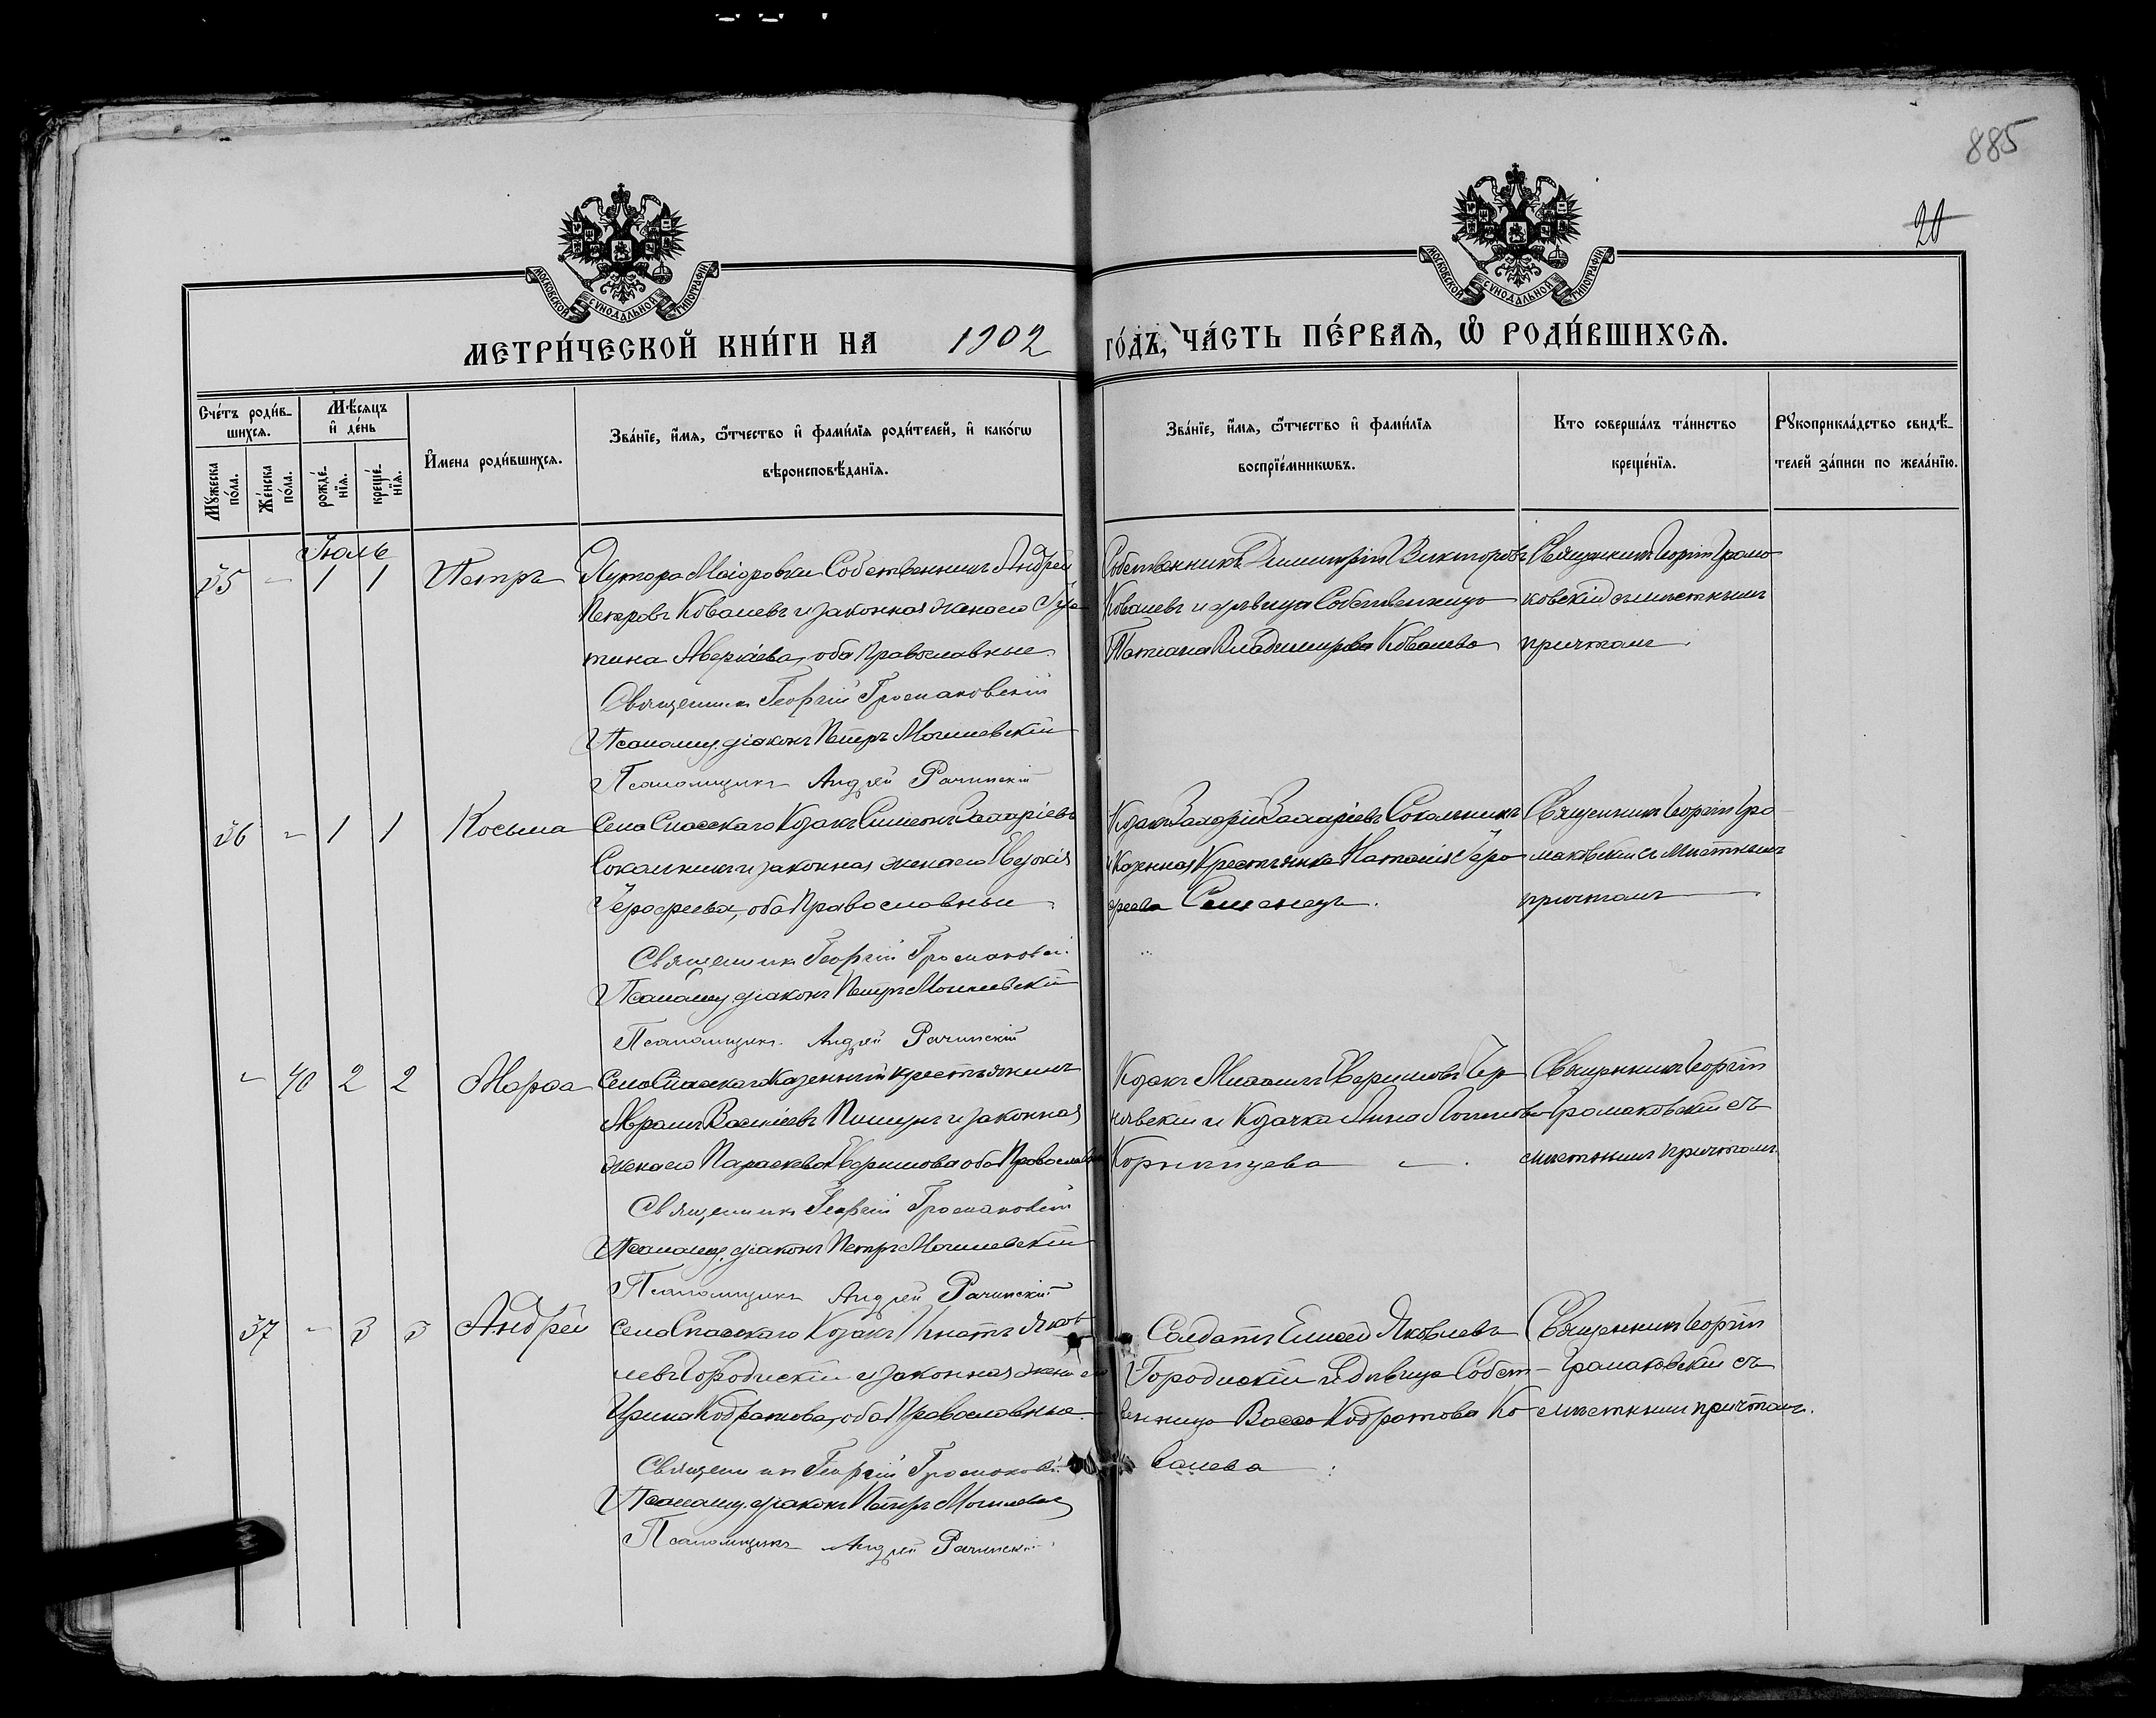 885
20
МОСКОВСКОЙ СѴНОДАЛЬНОЙ ТИПОГРАФІИ.
МОСКОВСКОЙ СѴНОДАЛЬНОЙ ТИПОГРАФІИ.
МЕТРИ́ЧЕСКОЙ КНИ́ГИ НА 1902 ГО́ДЪ, ЧА́СТЬ ПЕ́РВАѦ, Ѽ РОДИ́ВШИХСѦ.
Сче́тъ роди́в-
шихсѧ.
Мѣ́сѧцъ
и҆ де́нь
Мꙋ́жеска по́ла.
Же́нска по́ла.
рожде́-
нїѧ.
креще́-
нїѧ.
И҆мена роди́вшихсѧ.
Зва́нїе, и҆́мѧ, ѻ҆́тчество и҆ фами́лїѧ роди́телей, и҆ како́гѡ
вѣроисповѣ́данїѧ.
Зва́нїе, и҆́мѧ, ѻ҆́тчество и҆ фами́лїѧ
воспрїе́мникѡвъ.
Кто соверша́лъ та́инство
креще́нїѧ.
Рꙋкоприкла́дство свидѣ́-
телей за́писи по жела́нїю.
Іюль
35 - 1 1 Петръ
Хутора Маіоровки Собственникъ Андрей
Петровъ Ковалевъ и законная жена его
тина Аверкіева, оба Православные
Священникъ Георгій Громаковскій
Псаломщ. діаконъ Петръ Могилевскій
Псаломщикъ Андрей Рачинскій
Собственникъ Димитрій Викторовъ
Ковалевъ и дѣвица Собственница
Татіана Владимирова Ковалева
Священникъ Георгій Грома
ковскій съ мѣстнымъ
причтомъ
36 - 1 1 Косьма
Села Спасскаго Козакъ Симеонъ Захаріевъ
Сокальникъ и законная жена его Евдокія
Іерофеева, оба Православные
Священникъ Георгій Громаковскій
Псаломщ. діаконъ Петръ Могилевскій
Псаломщикъ Андрей Рачинскій
Козакъ Захарій Захаріевъ Сокальникъ
и Казенная Крестьянка Наталія Іеро
феева Семенецъ.
Священникъ Георгій Гро
маковскій съ мѣстнымъ
причтомъ
- 40 2 2 Марѳа
Села Спасскаго Казенный крестьянинъ
Аврамъ Василіевъ и законная
жена его Параскева Ефимова оба Православные
Священникъ Георгій Громаковскій
Псаломщ. діаконъ Петръ Могилевскій
Псаломщикъ Андрей Рачинскій
Козакъ Михаилъ Чер
нявскій и Козачка Анна
Священникъ Георгій
Громаковскій съ
мѣстнымъ причтомъ
37 - 3 3 Андрей
Села Спасскаго Козакъ Игнатъ Яков
левъ Городискій и законная жена его
Ирина Кодратова, оба Православные.
Священникъ Георгій Громаковскій
Псаломщ. діаконъ Петръ Могилевскій
Псаломщикъ Андрей Рачинскій
Солдатъ Елисей Яковлевъ
Городискій и дѣвица Собст-
венница Васса Кодратова Ко
валева
Священникъ Георгій
Громаковскій съ
мѣстнымъ причтомъ.